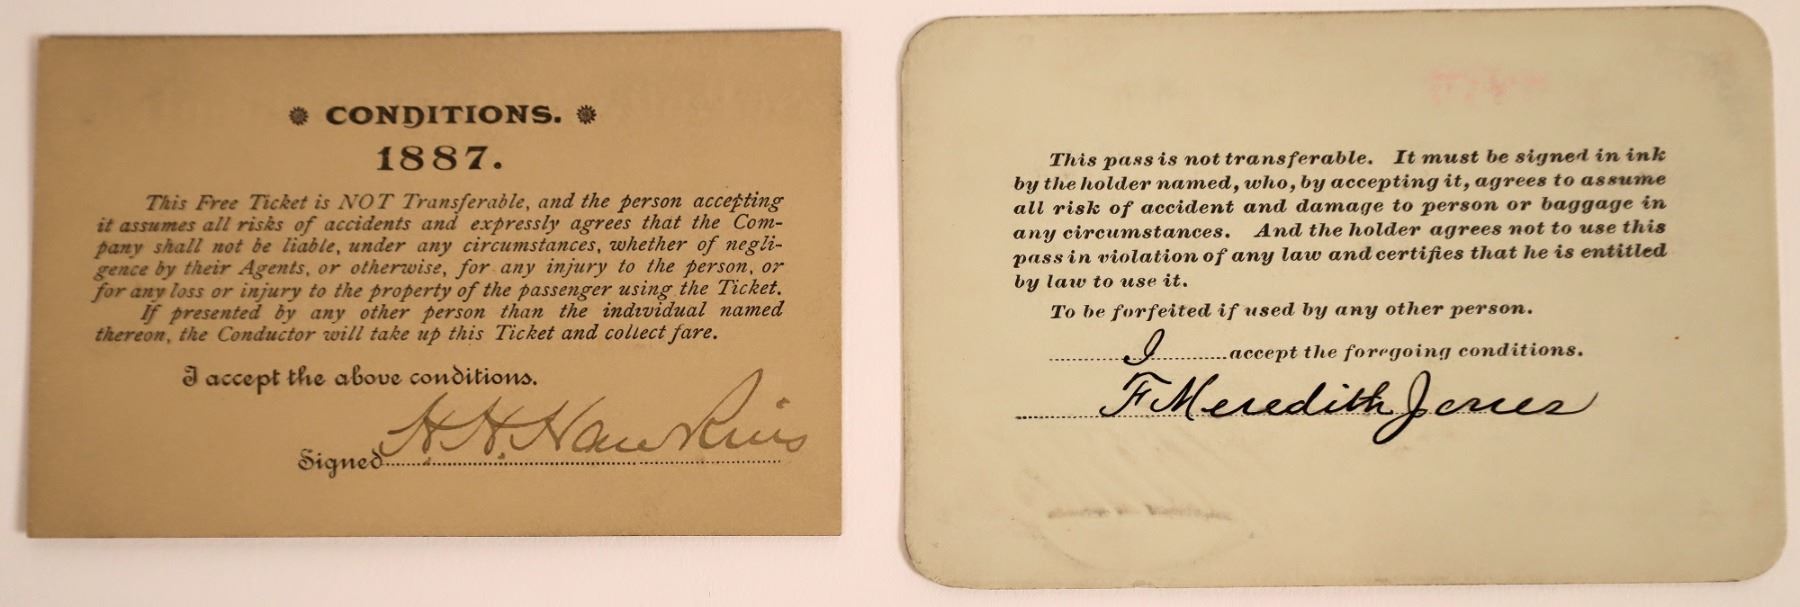 CONDITIONS.
1887.
This Free Ticket is NOT Transferable, and the person accepting
it assumes all risks of accidents and expressly agrees that the Com-
pany shall not be liable, under any circumstances, whether of negli-
gence by their Agents, or otherwise, for any injury to the person, or
for any loss or injury to the property of the passenger using the Ticket.
If presented by any other person than the individual named
thereon, the Conductor will take up this Ticket and collect fare.
I accept the above conditions.
Signed H. H. Hawkins
This pass is not transferable. It must be signed in ink
by the holder named, who, by accepting it, agrees to assume
all risk of accident and damage to person or baggage in
any circumstances. And the holder agrees not to use this
pass in violation of any law and certifies that he is entitled
by law to use it.
To be forfeited if used by any other person.
I accept the foregoing conditions.
F Meredith Jones